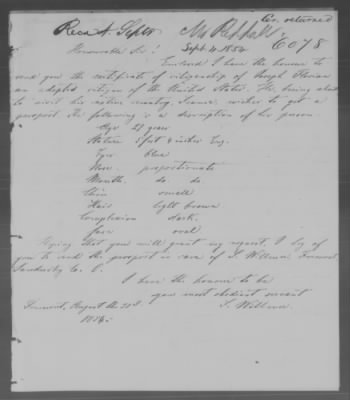 Cer. returned
Recd Septr
Sept. 4. 1854
6078
Honorable Sir!
Enclosed I have the honour to
send you the certificate of citizenship of Joseph
an adopted citizen of the United States. He being about
to visit his native country, France, wishes to get a
passport. The following is a description of his person.
Age years
Stature 5 feet 4 inches Eng.
Eyes blue
Nose proportionate
Mouth do do
Chin small
Hair light brown
Complexion dark
face oval
Hoping that you will grant my request, I beg of
you to send the passport in care of Fremont,
Sandusky
I have the honour to be
your most obedient servant
Fremont, August the
1854.